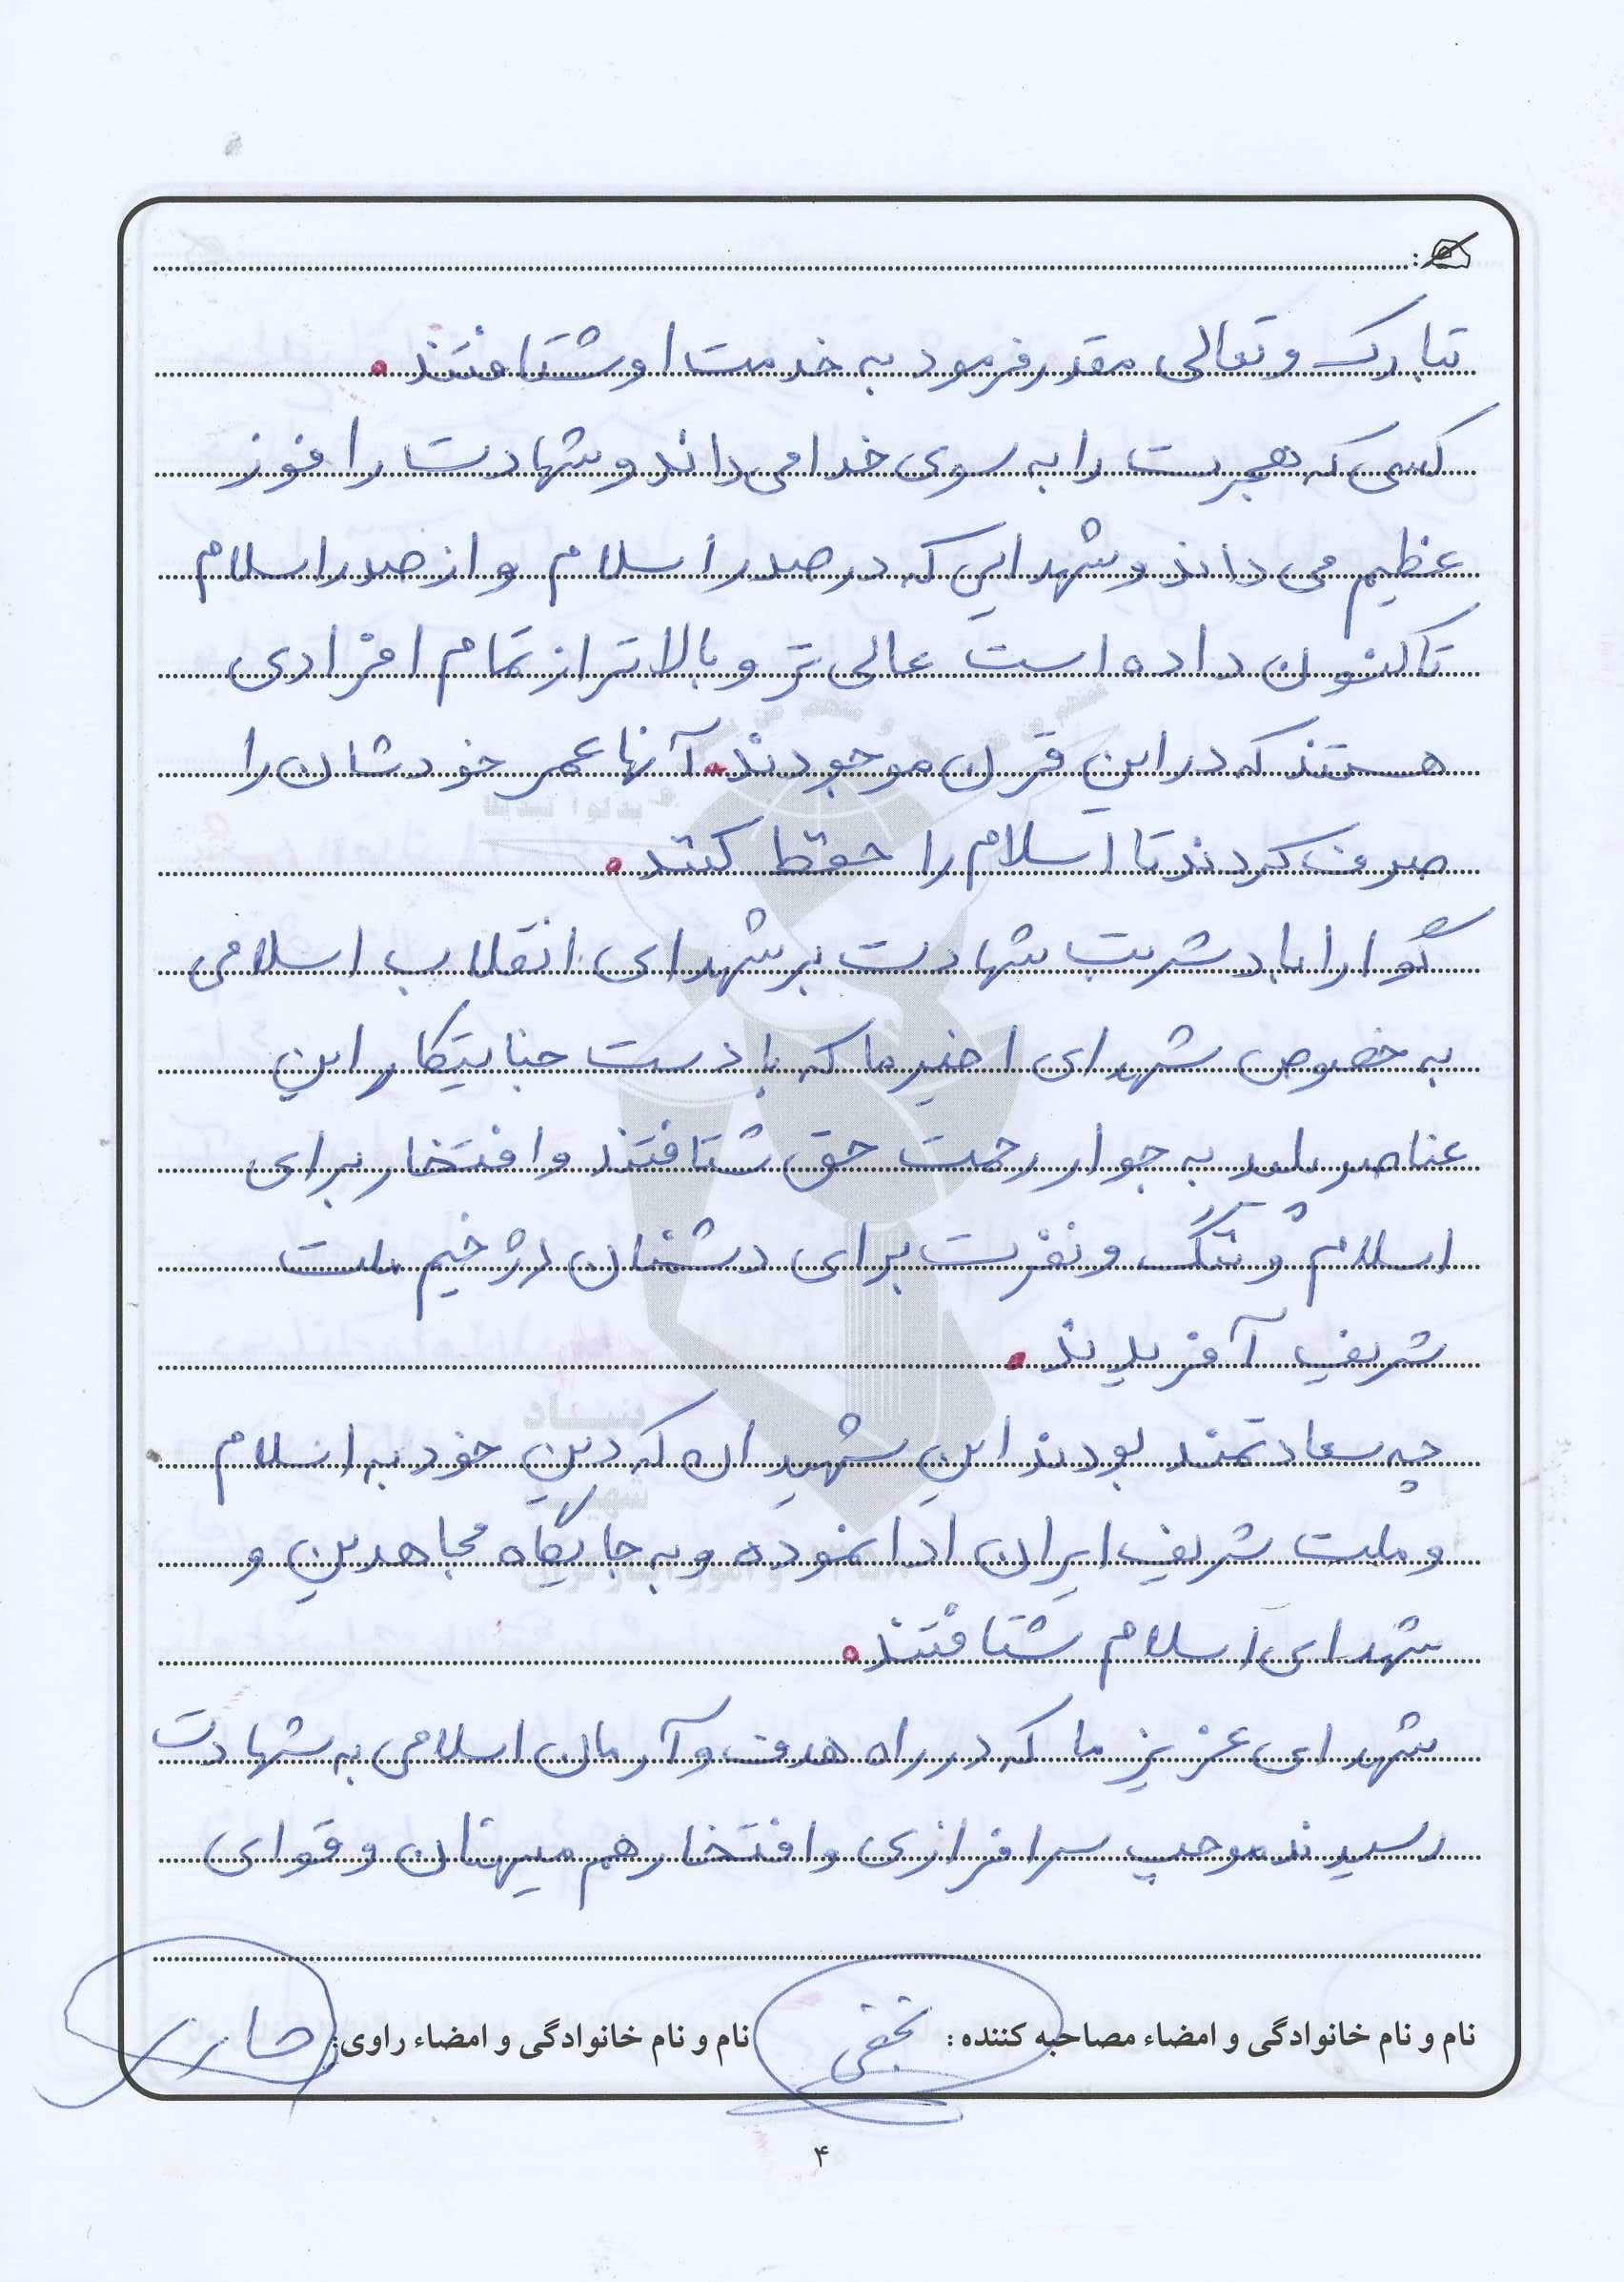 تبارک و تعالی مقدر فرمود به خدمت او شتافتند.
کسی که هجرت را به سوی خدا می داند و شهادت را فوز
عظیم می داند و شهدایی که در صدر اسلام و از صدر اسلام
تاکنون داده است عالی تر و بالاتر از تمام افرادی
هستند که در این قرن موجودند. آنها عمر خودشان را
صرف کردند تا اسلام را حفظ کنند.
گوارا باد شربت شهادت بر شهدای انقلاب اسلامی
به خصوص شهدای اخیر ما که با دست جنایتکار این
عناصر پلید به جوار رحمت حق شتافتند و افتخار برای
اسلام و ننگ و نفرت برای دشمنان دژخیم ملت
شریف آفریدند.
چه سعادتمند بودند این شهیدان که دین خود به اسلام
و ملت شریف ایران ادا نموده و به جایگاه مجاهدین و
شهدای اسلام شتافتند.
شهدای عزیز ما که در راه هدف و آرمان اسلامی به شهادت
رسیدند موجب سرافرازی و افتخار هم میهنان و قوای
نام و نام خانوادگی و امضاء مصاحبه کننده : نام و نام خانوادگی و امضاء راوی:
۴